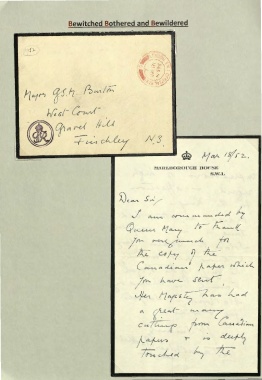 Bewitched Bothered and Bewildered
Major G.S.M. Burton
West Court
Gravel Hill
Finchley N3.
MARLBOROUGH HOUSE
S.W.1.
Mar 18/52.
Dear Sir,
I am commanded by
Queen Mary to thank
you very much for
the copy of the
Canadian paper which
you have sent.
Her Majesty has had
a great many
cuttings from Canadian
papers & is deeply
touched by the